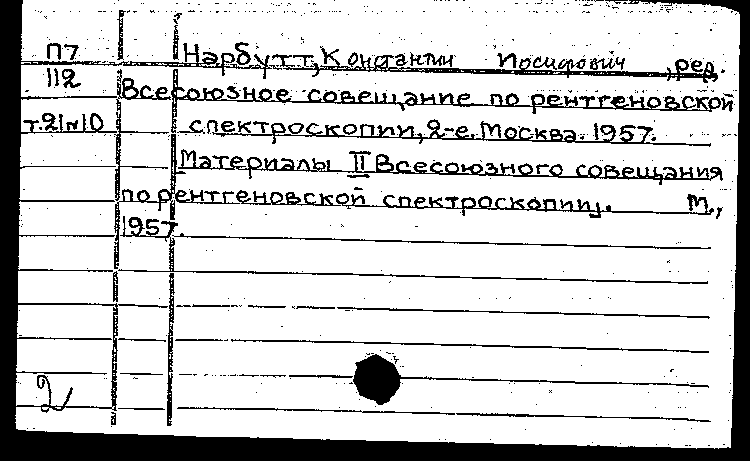 П7 Нарбутт, Константин Иосифович, ред.
112 Всесоюзное совещание по рентгеновской
т.21 №10 спектроскопии, 2-е. Москва. 1957.
Материалы II Всесоюзного совещания
по рентгеновской спектроскопии. М.,
1957.
2